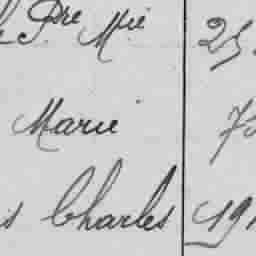 Pre Mie 25
Marie 7
is Charles 191